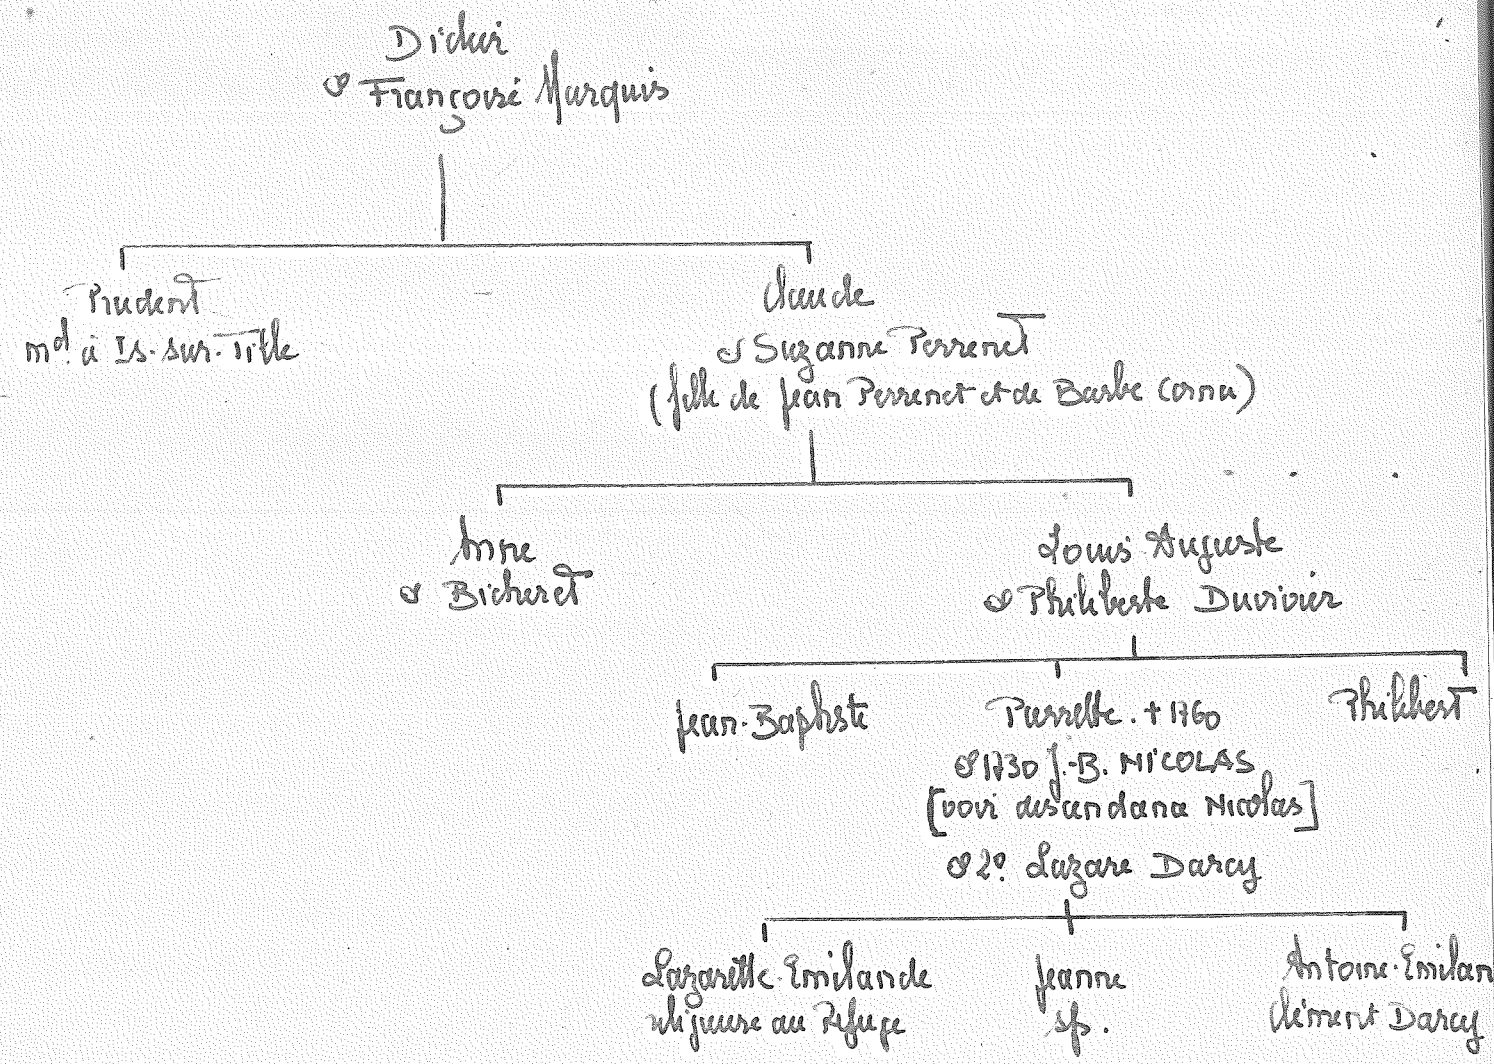 Didier
⚭ Françoise Marquis
Prudent
md. à Is-sur-Tille
Claude
⚭ Suzanne Perrenet
(fille de Jean Perrenet et de Barbe Cornu)
Anne
⚭ Bicheret
Louis Auguste
⚭ Philiberte Duvivier
Jean-Baptiste
Pierrette . + 1760
⚭ 1730 J.-B. NICOLAS
[voir descendance Nicolas]
⚭ 2º. Lazare Darcy
Philibert
Lazarette-Emilande
religieuse au Refuge
Jeanne
sp.
Antoine-Emilan
Clément Darcy